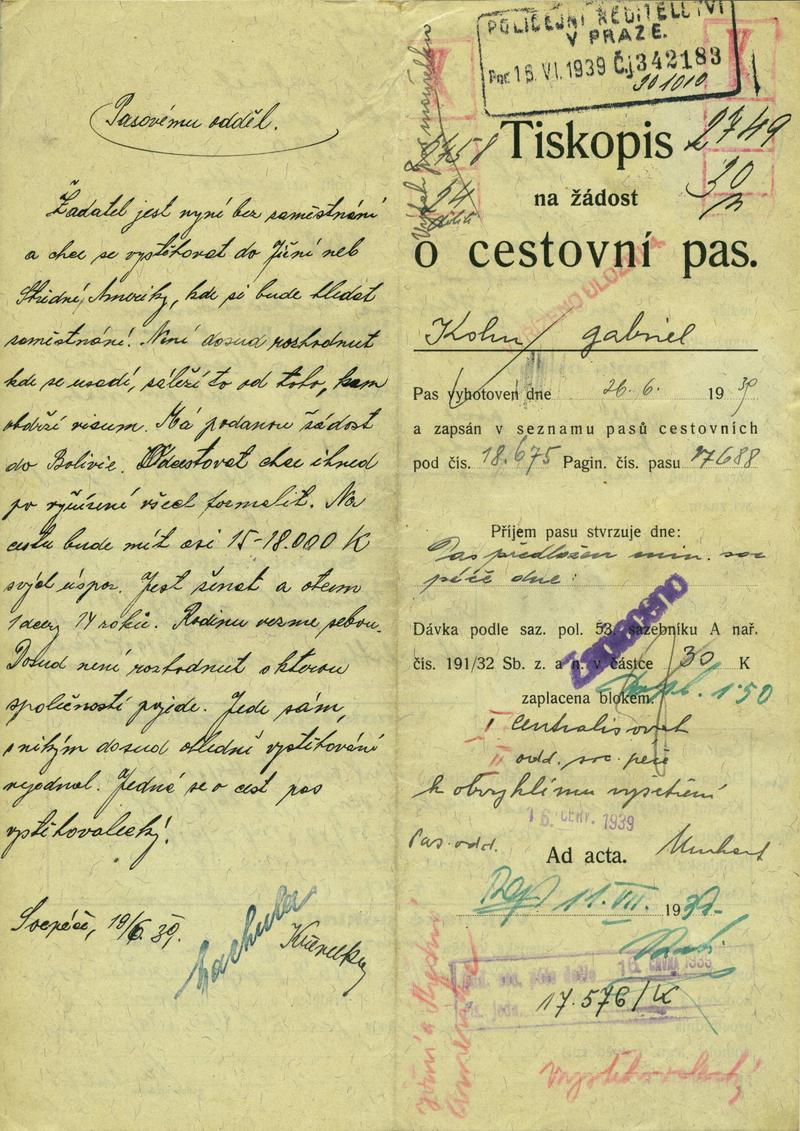 Pasovému odděl.
Žadatel jest nyní bez zaměstnání
a chce se vystěhovat do Jižní neb
Střední Ameriky, kde si bude hledat
zaměstnání! Není dosud rozhodnut
kde se usadí, záleží to od toho, kam
obdrží visum. Má podanou žádost
do Bolivie. Odcestovat chce ihned
po vyřízení všech formalit. Na
cestu bude mít asi 15-18.000 K
svých úspor. Jest ženat a otcem
1 dcery 14 roků. Rodinu vezme sebou.
Dosud není rozhodnut s kterou
společností pojede. Jede sám,
s nikým dosud ohledně vystěhování
nejednal. Jedná se o cest pas
vystěhovalecký!
Socpéče, 19/6. 39.
POLICEJNÍ ŘEDITELSTVÍ
V PRAZE.
16. VI. 1939 Čj 342183
301010
Tiskopis 2749
na žádost 30
o cestovní pas.
Kohn gabriel
Pas vyhotoven dne 26. 6. 1939
a zapsán v seznamu pasů cestovních
pod čís. 18.675 Pagin. čís. pasu 17688
Příjem pasu stvrzuje dne:
Pas předložen min. soc
péče dne:
Dávka podle saz. pol. 53. sazebníku A nař.
čís. 191/32 Sb. z. a n. v částce 30 K
Zaplaceno
zaplacena blokem. 1·50
I centralisovat
II odd. soc. péče
k obvyklímu vyšetření
16. ČERV. 1939
Pas. odd.
Ad acta.
11. VII. 1939
17.576/K
Jižní a Střední
Amerika
Vystěhovalecký!